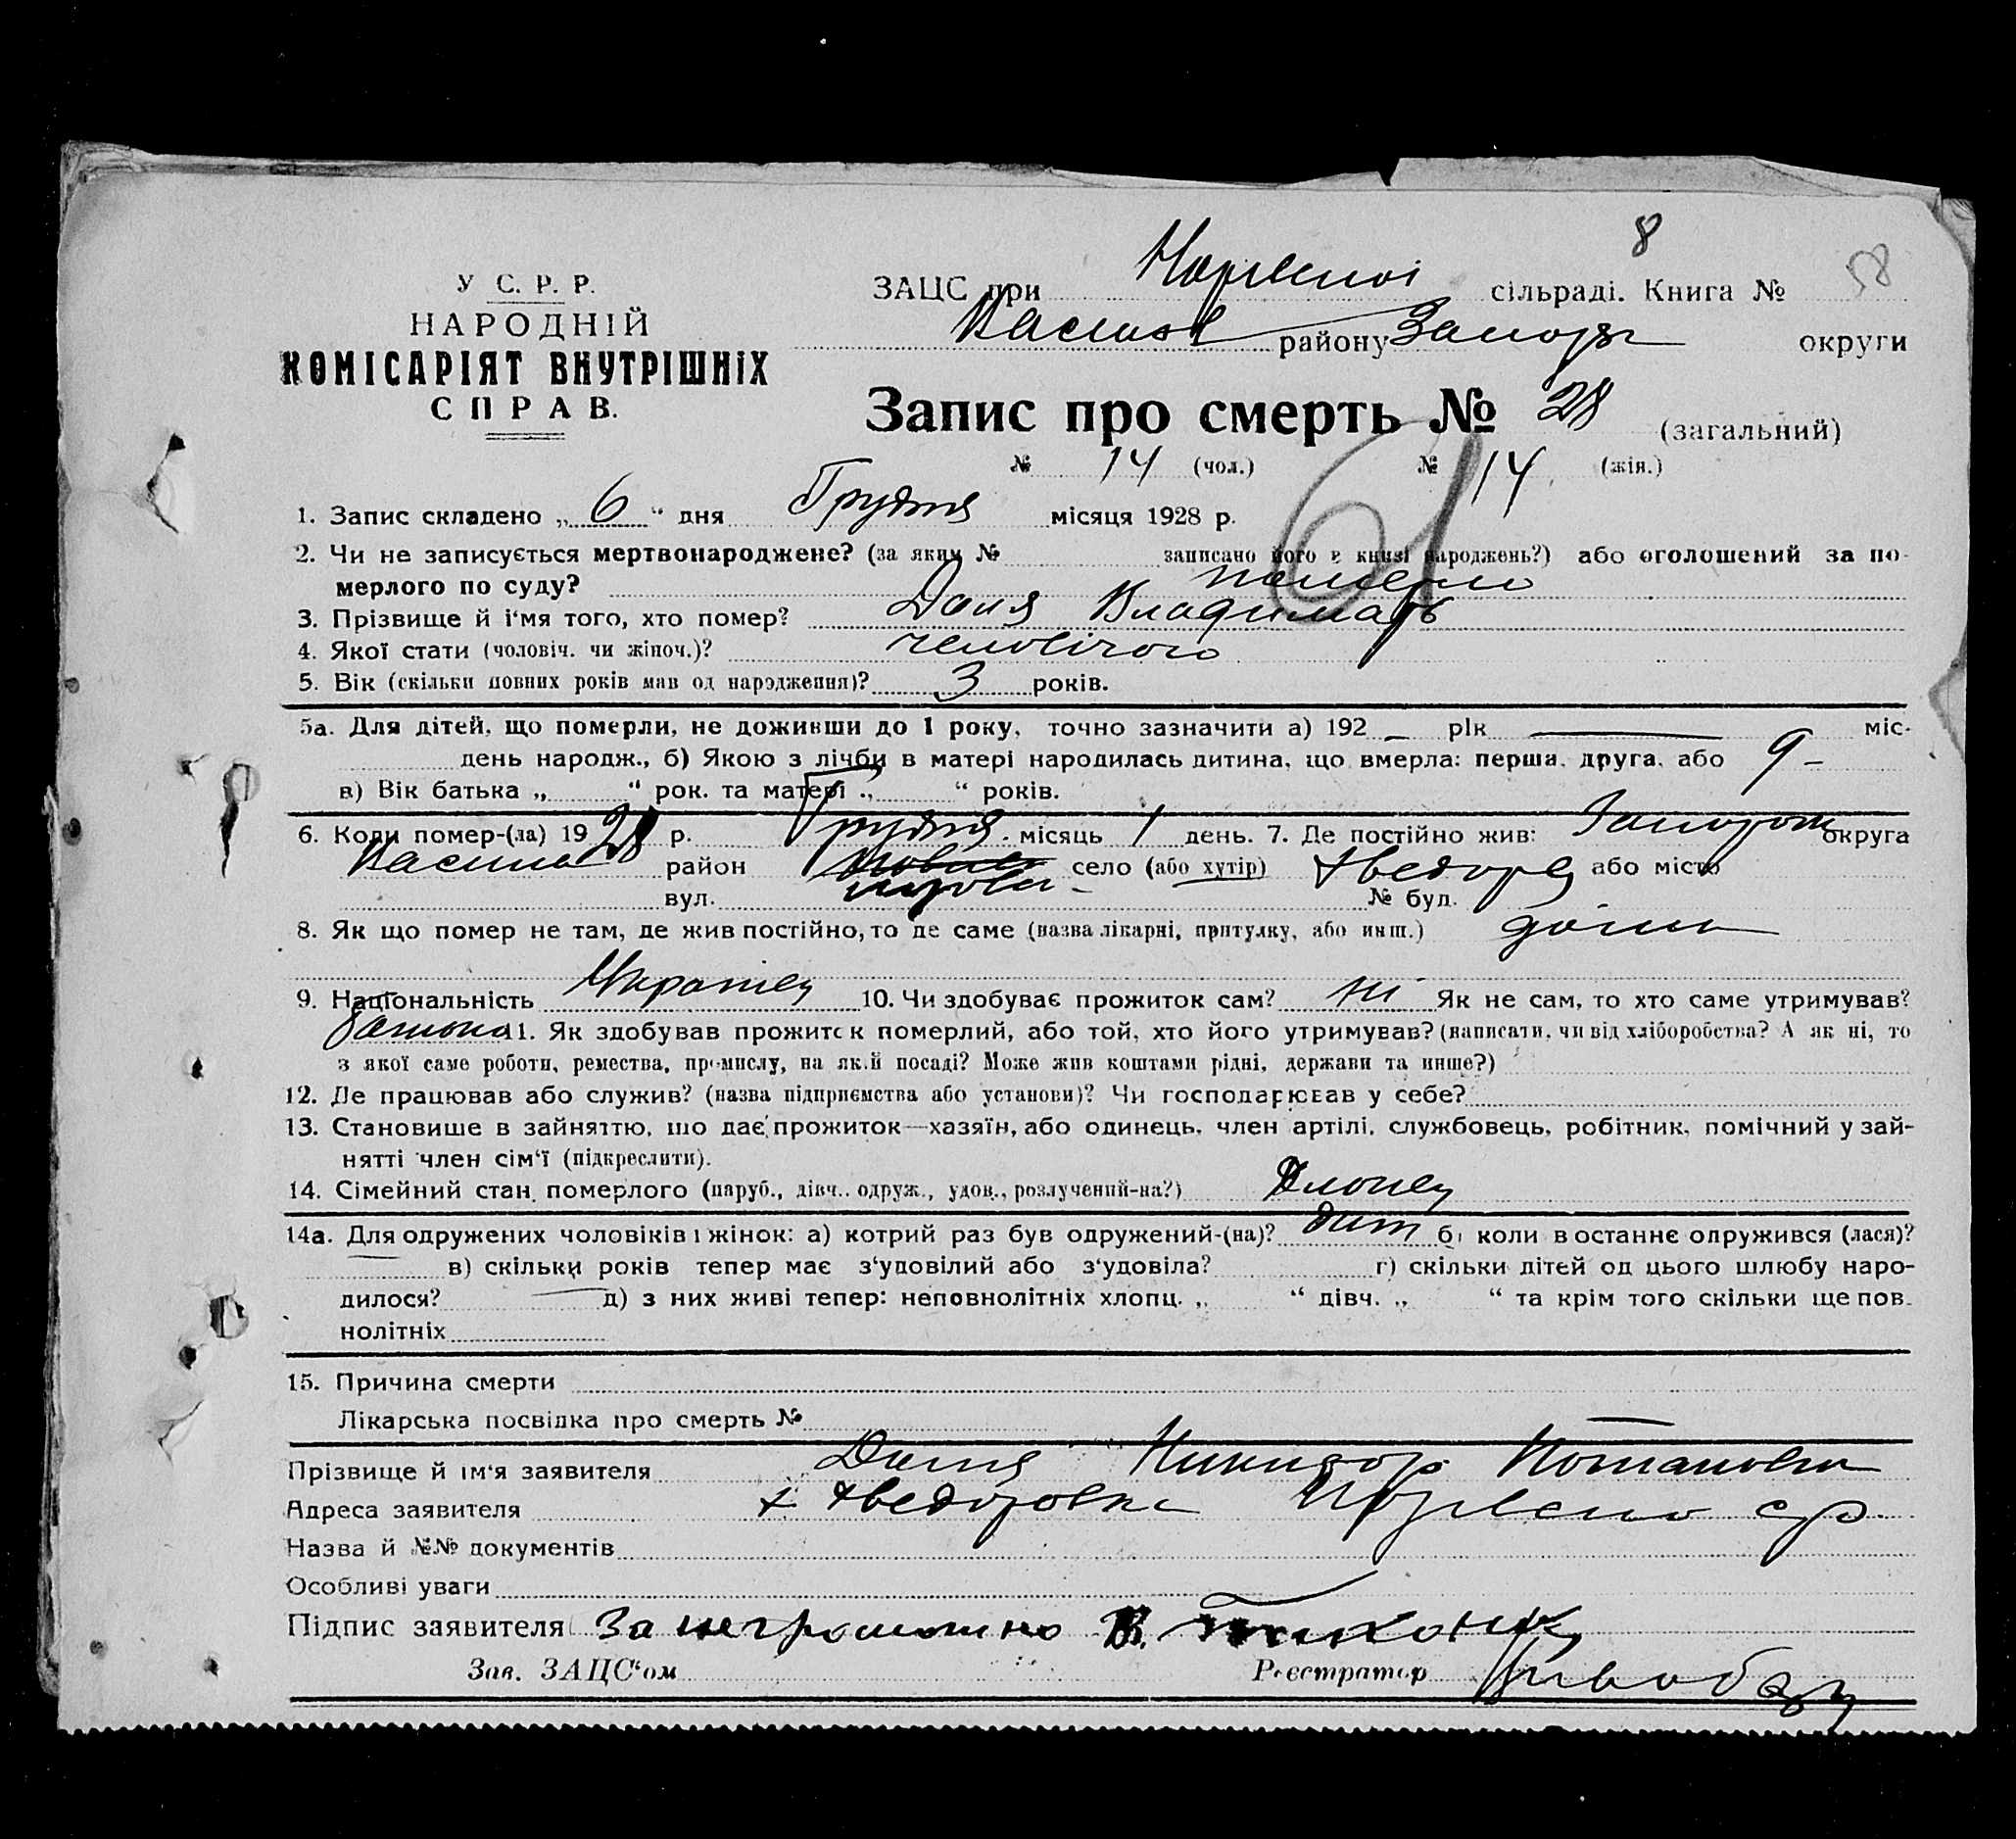 8
58
У С. Р. Р.
НАРОДНІЙ
КОМІСАРІЯТ ВНУТРІШНІХ
СПРАВ.
ЗАЦС при сільраді. Книга №
району Запорізь округи
Запис про смерть № 28 (загальний)
№ 14 (чол.) № 14 (жін.)
61
1. Запис складено „ 6 “ дня Грудня місяця 1928 р.
2. Чи не записується мертвонароджене? (за яким № записано його в книзі народжень?) або оголошений за по-
мерлого по суду? померло
3. Прізвище й і'мя того, хто помер? Доля Владимаръ
4. Якої стати (чоловіч. чи жіноч.)? человічого
5. Вік (скільки повних років мав од народження)? 3 років.
5а. Для дітей, що померли, не доживши до 1 року, точно зазначити а) 192 – рік — міс.
день народж., б) Якою з лічби в матері народилась дитина, що вмерла: перша, друга, або 9 –
в) Вік батька „ “ рок. та матері „ “ років.
6. Коли помер-(ла) 1928 р. Грудня місяць 1 день. 7. Де постійно жив: Запорож округа
район село (або хутір) Хведоро або місто
вул. № буд.
8. Як що помер не там, де жив постійно, то де саме (назва лікарні, притулку, або инш.) дома
9. Національність Украінец 10. Чи здобуває прожиток сам? ні Як не сам, то хто саме утримував?
батько 11. Як здобував прожиток померлий, або той, хто його утримував? (написати, чи від хліборобства? А як ні, то
з якої саме роботи, ремества, промислу, на якій посаді? Може жив коштами рідні, держави та инше?)
12. Де працював або служив? (назва підприємства або установи)? Чи господарював у себе?
13. Становище в зайняттю, що дає прожиток—хазяїн, або одинець, член артілі, службовець, робітник, помічний у зай-
нятті член сім'ї (підкреслити).
14. Сімейний стан померлого (паруб., дівч., одруж., удов., розлучений-на?) Хлопец
14а. Для одружених чоловіків і жінок: а) котрий раз був одружений-(на)? дит б) коли востаннє одружився (лася)?
— в) скільки років тепер має з'удовілий або з'удовіла? г) скільки дітей од цього шлюбу наро-
дилося? — д) з них живі тепер: неповнолітніх хлопц. „ “ дівч. „ “ та крім того скільки ще пов-
нолітніх
15. Причина смерти
Лікарська посвідка про смерть № —
Прізвище й ім'я заявителя Доля Никифор Потапович
Адреса заявителя х Хведоровка с/р
Назва й №№ документів
Особливі уваги
Підпис заявителя За неграмотно В.
Зав. ЗАЦС'ом Реєстратор